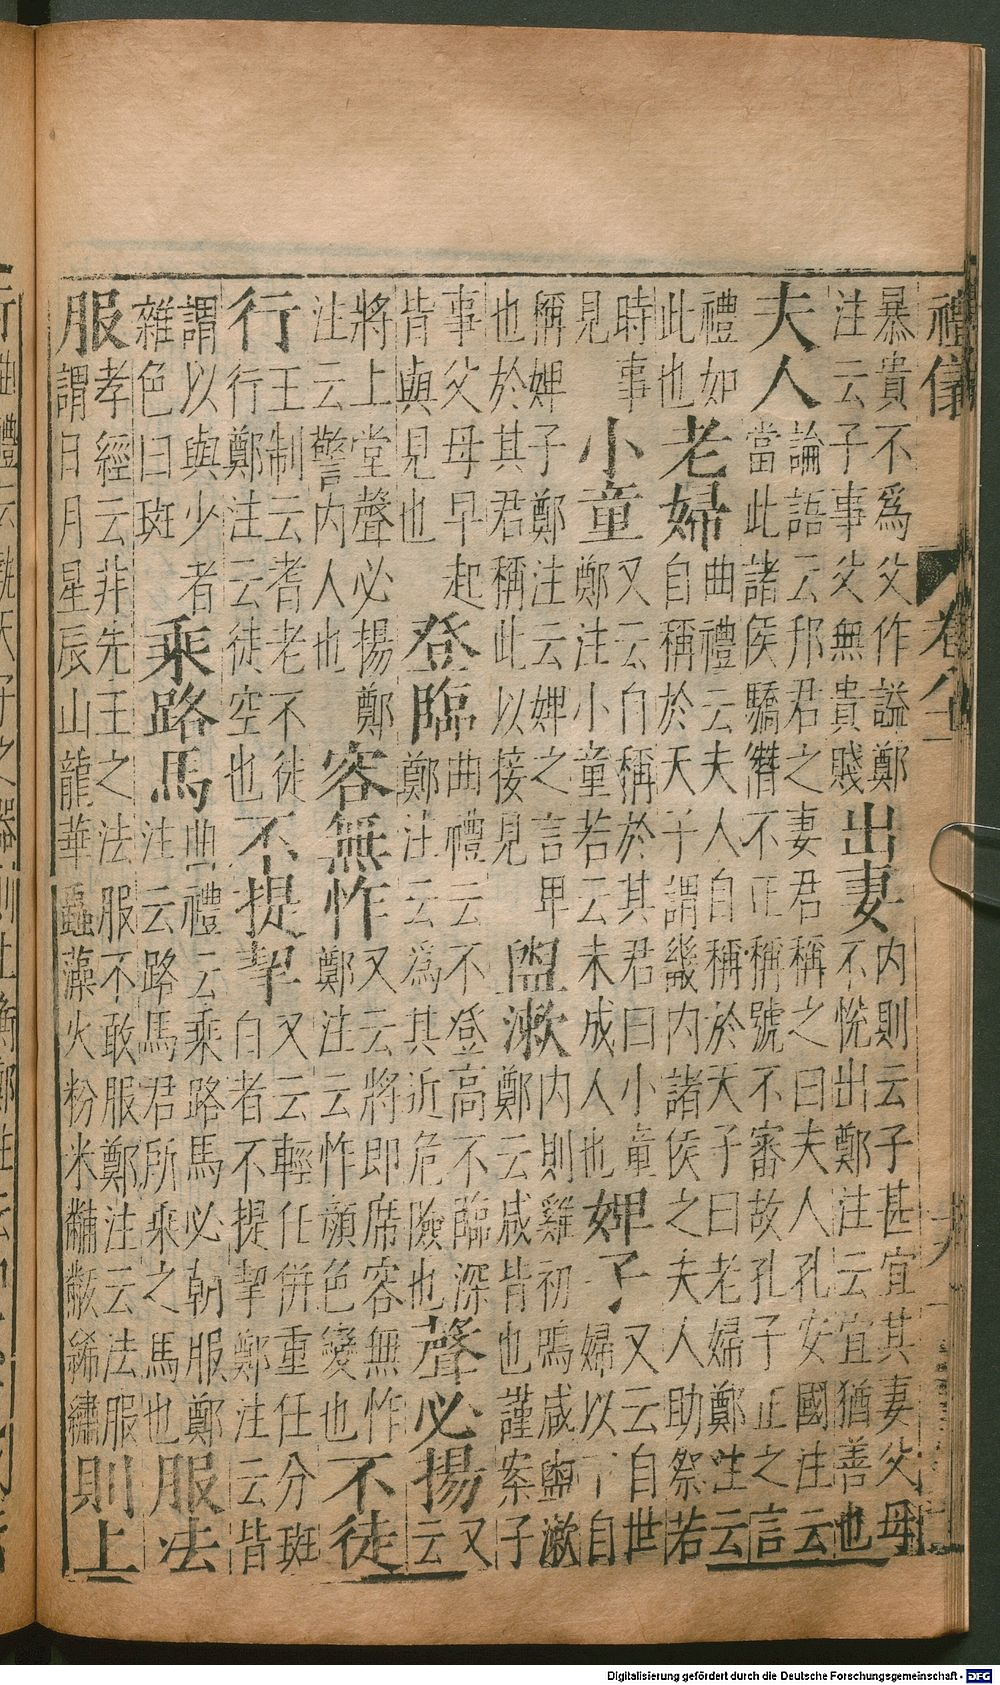 禮儀 卷八十
暴貴不爲父作謚鄭注云子事父無貴賤出妻内則云子甚宜其妻父母不悅出鄭注云宜猶善也
夫人論語云邦君之妻君稱之曰夫人孔安國注云當此諸侯驕僭不正稱號不審故孔子正之言
禮如此也老婦曲禮云夫人自稱於天子曰老婦鄭注云自稱於天子謂畿内諸侯之夫人助祭若
時事見小童又云自稱於其君曰小童鄭注小童若云未成人也婢子又云自世婦以下自
稱婢子鄭注云婢之言卑也於其君稱此以接見盥漱内則雞初鳴咸盥漱鄭云咸皆也謹案子
事父母早起皆與見也登臨曲禮云不登高不臨深鄭注云爲其近危險也聲必揚又云
將上堂聲必揚鄭注云警内人也容無怍又云將即席容無怍鄭注云怍顔色變也不徒
行王制云耆老不徒行鄭注云徒空也不提挈又云輕任併重任分斑白者不提挈鄭注云皆
謂以與少者雜色曰斑乘路馬曲禮云乘路馬必朝服鄭注云路馬君所乘之馬也服法
服孝經云非先王之法服不敢服鄭注云法服謂日月星辰山龍華蟲藻火粉米黼黻絺繡則上
Digitalisierung gefördert durch die Deutsche Forschungsgemeinschaft - DFG